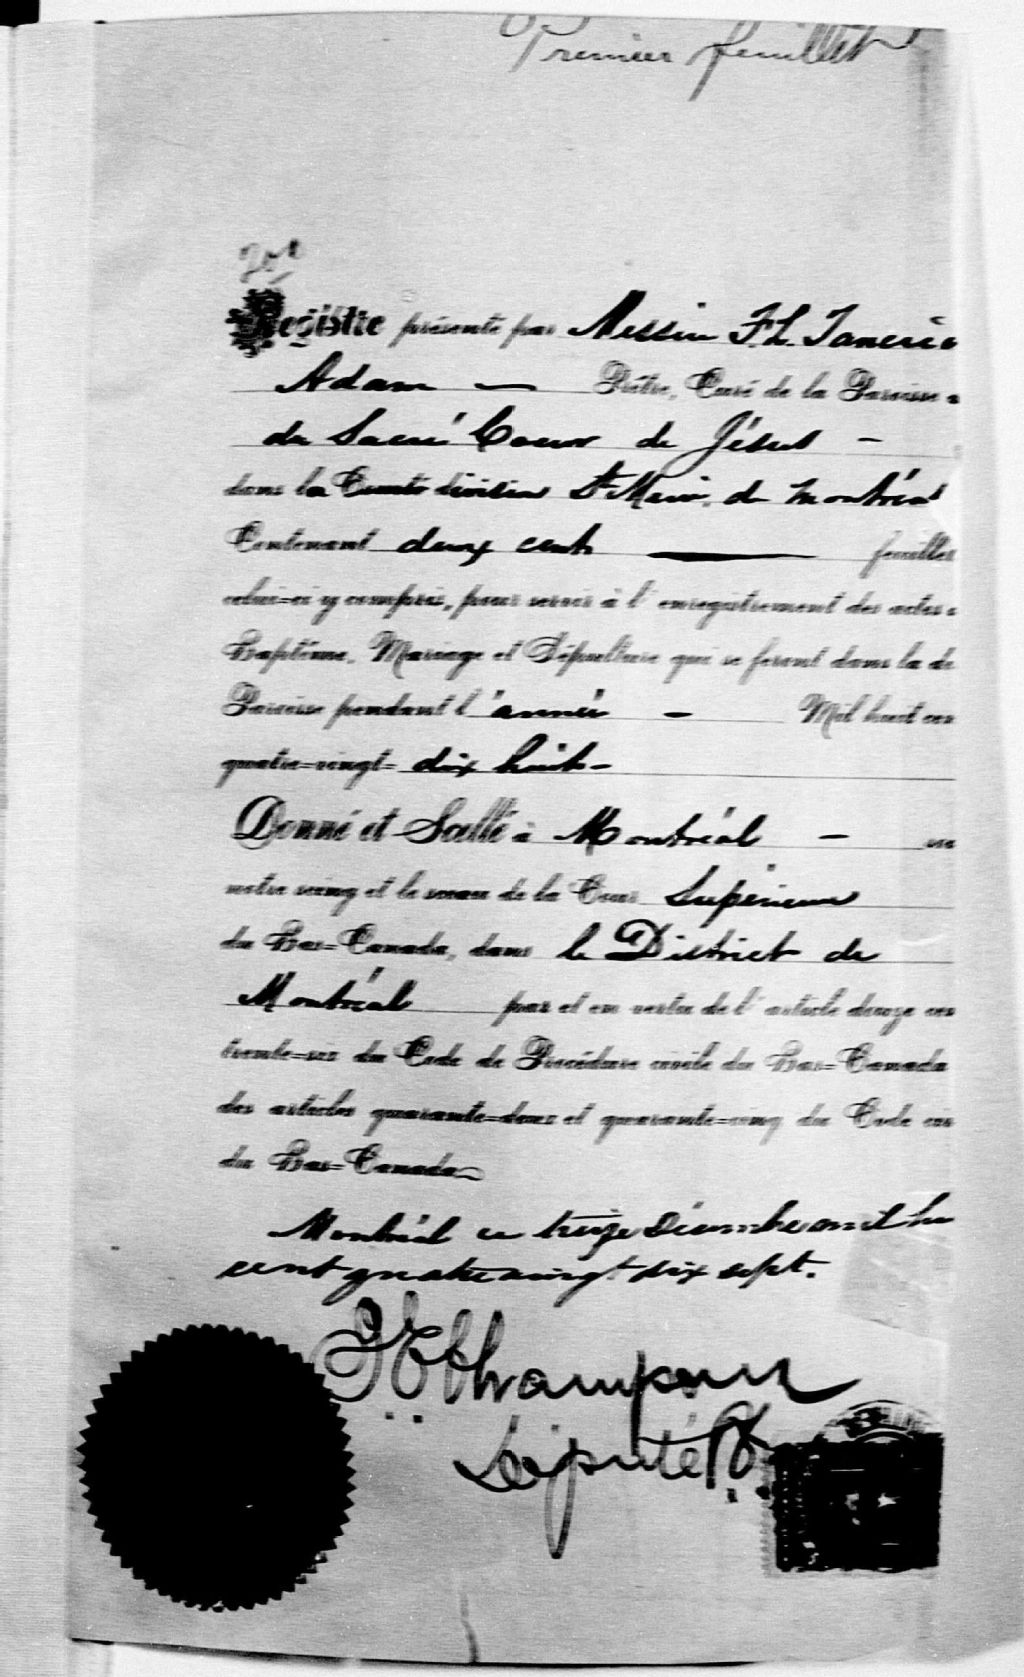 Premier feuillet
Registre présenté par Messire F.L. Tancrède
Adam — Prêtre, Curé de la Paroisse
du Sacré Coeur de Jésus —
dans la division Ste Marie, de Montréal
Contenant deux cents feuillets
celui=ci y compris, pour servir à l'enregistrement des actes
Baptême, Mariage et Sépulture qui se feront dans la de
Paroisse pendant l'année — Mil huit cen
quatre=vingt= dix huit —
Donné et Scellé à Montréal —
notre seing et le sceau de la Cour Supérieure
du Bas=Canada, dans le District de
Montréal par et en vertu de l'article douze cen
trente=six du Code de Procédure civile du Bas=Canada
des articles quarante=deux et quarante=cinq du Code civ
du Bas=Canada
Montréal ce treize Décembre mil hu
cent quatre vingt dix sept.
Député